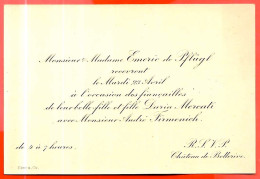 Monsieur & Madame Emeric de Pflügl
recevront
le Mardi 23 Avril
à l'occasion des fiançailles
de leur belle-fille et fille Daria Mercati
avec Monsieur André Firmenich.
de 4 à 7 heures.
R.S.V.P.
Château de Bellerive.